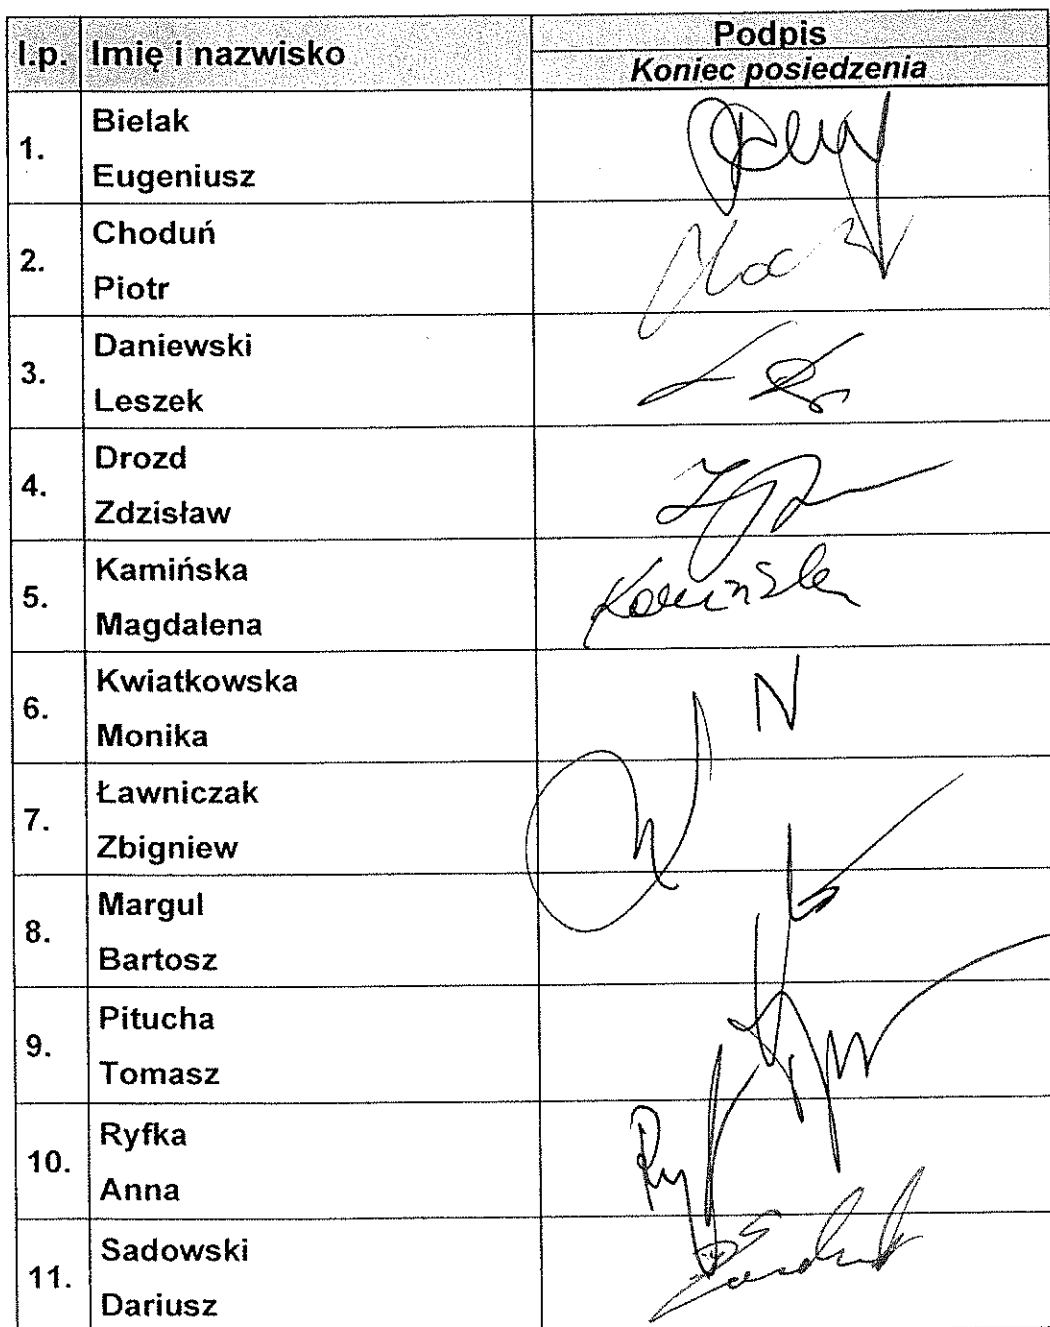 l.p. Imię i nazwisko Podpis
Koniec posiedzenia
1. Bielak
Eugeniusz
2. Choduń
Piotr
3. Daniewski
Leszek
4. Drozd
Zdzisław
5. Kamińska
Magdalena
Kamińska
6. Kwiatkowska
Monika
N
7. Ławniczak
Zbigniew
8. Margul
Bartosz
9. Pitucha
Tomasz
10. Ryfka
Anna
11. Sadowski
Dariusz